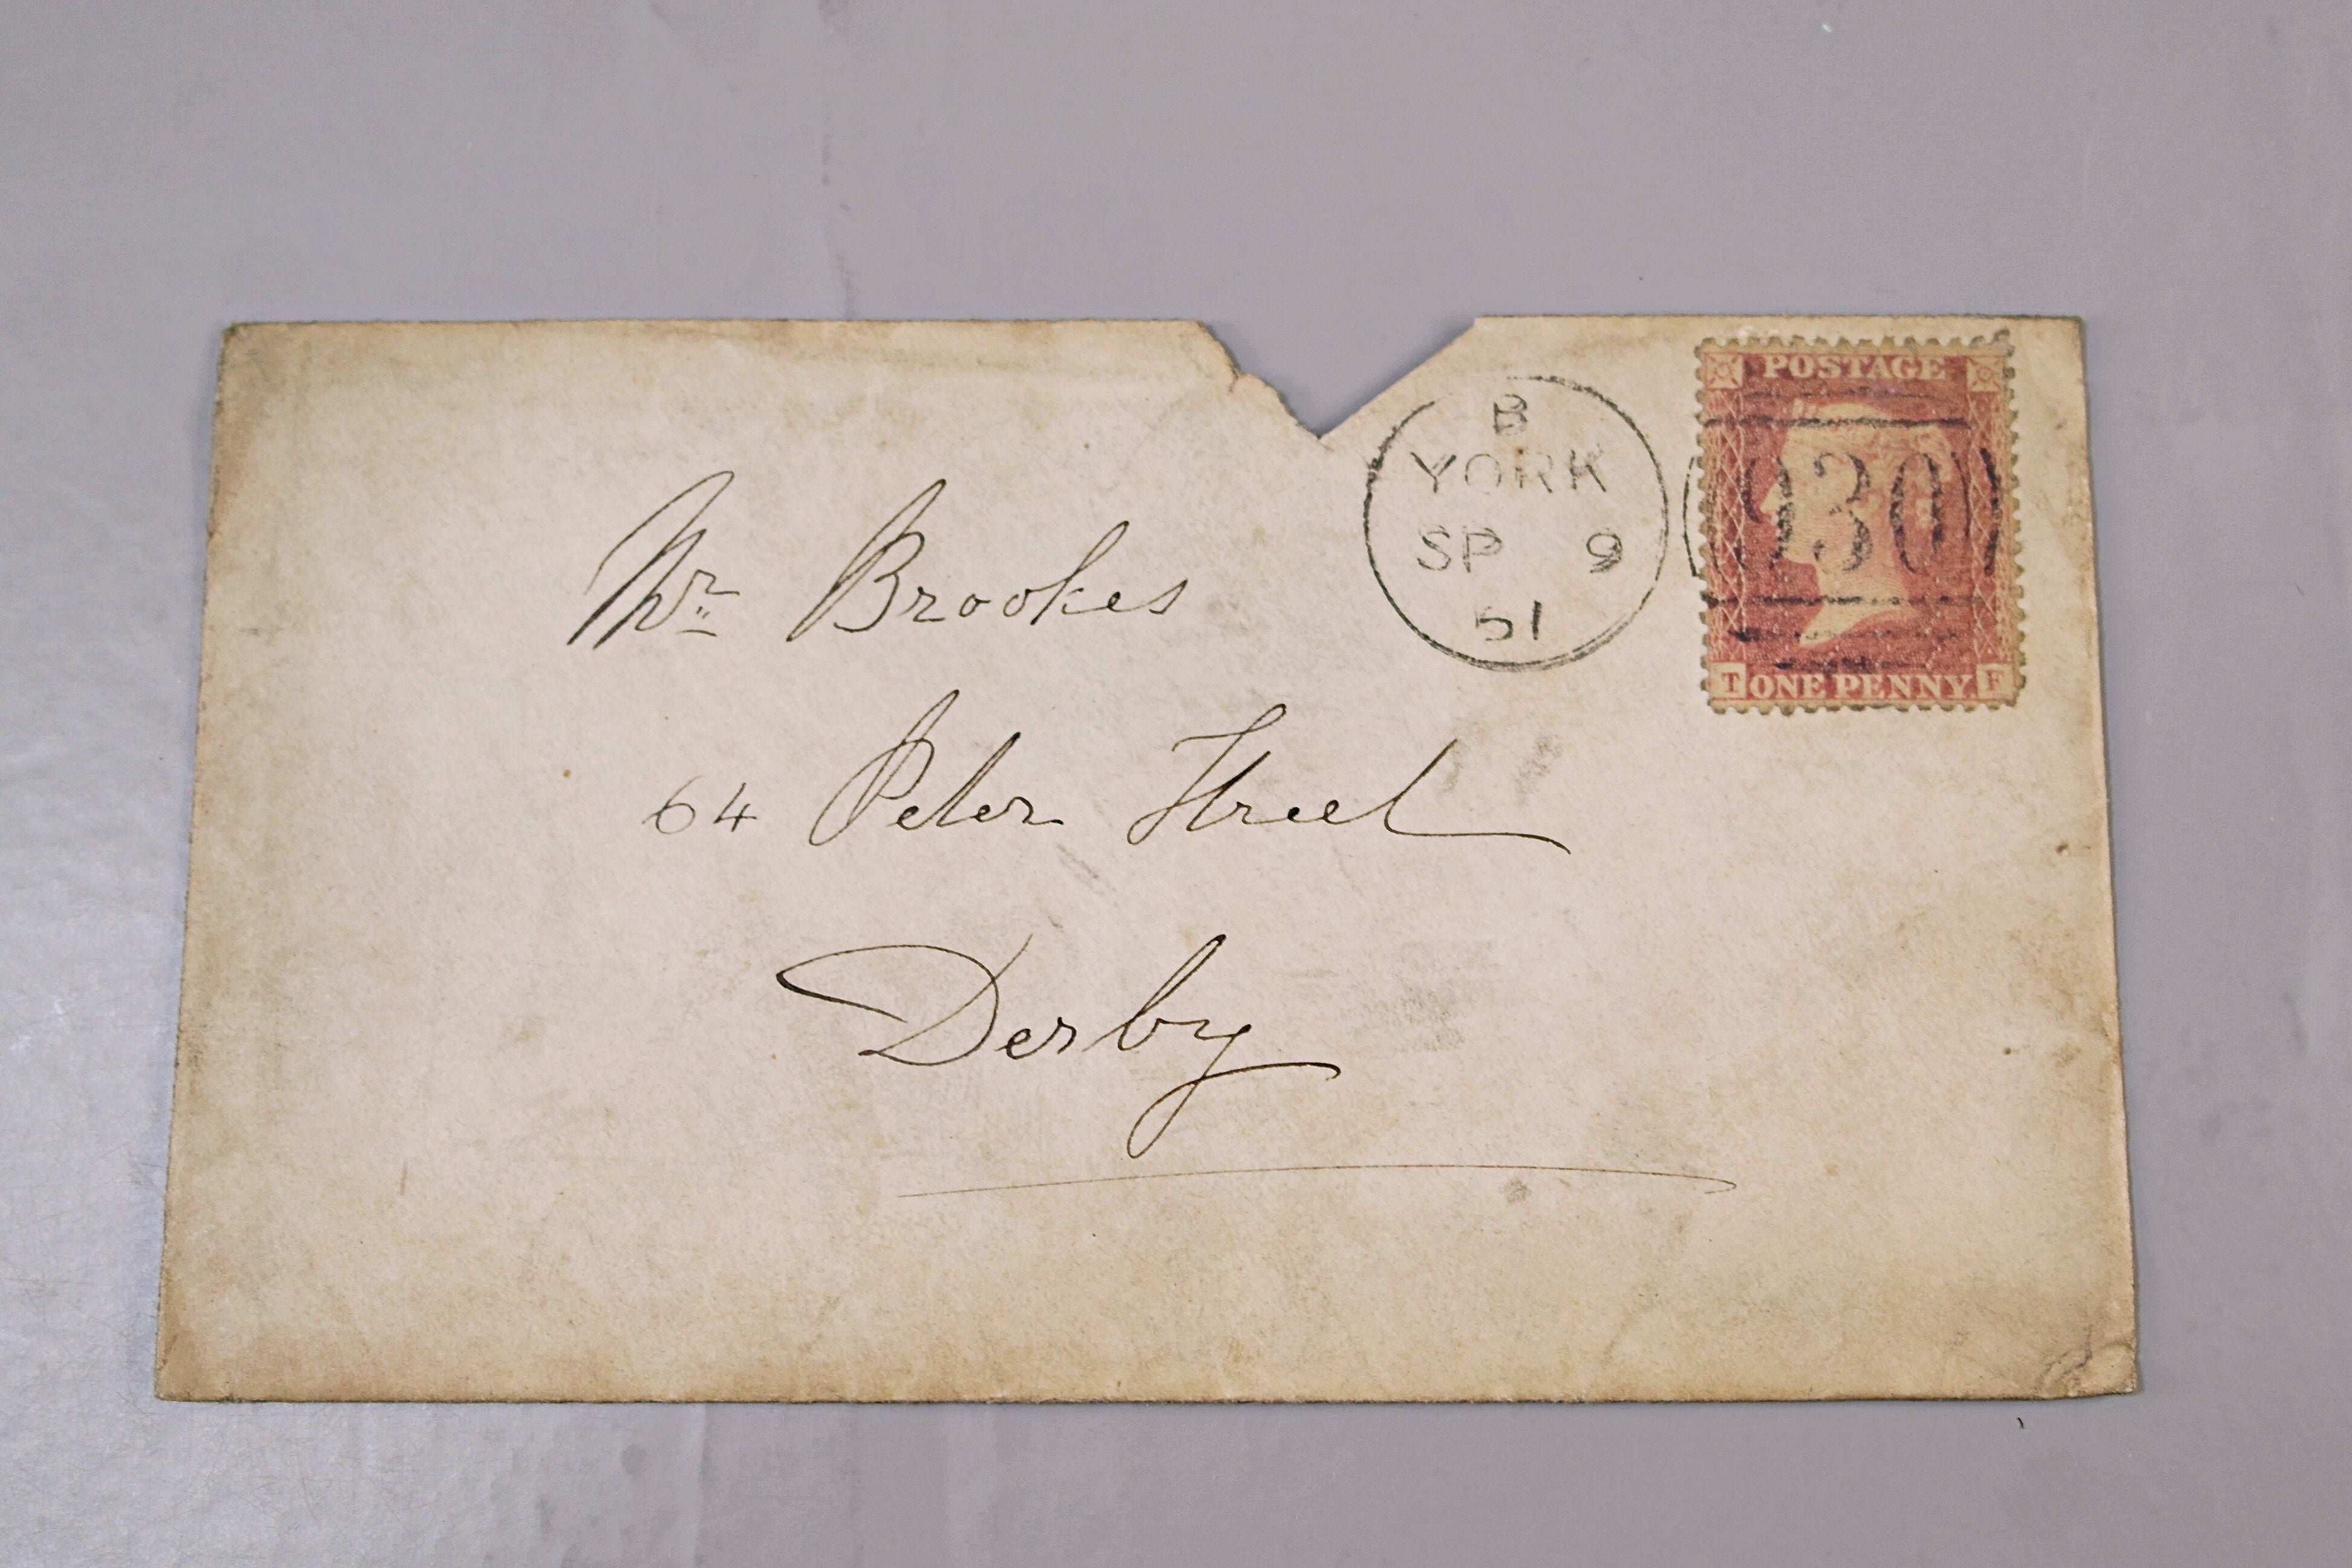 B
YORK
SP 9
61
POSTAGE
930
T ONE PENNY F
Mr Brookes
64 Peter Street
Derby